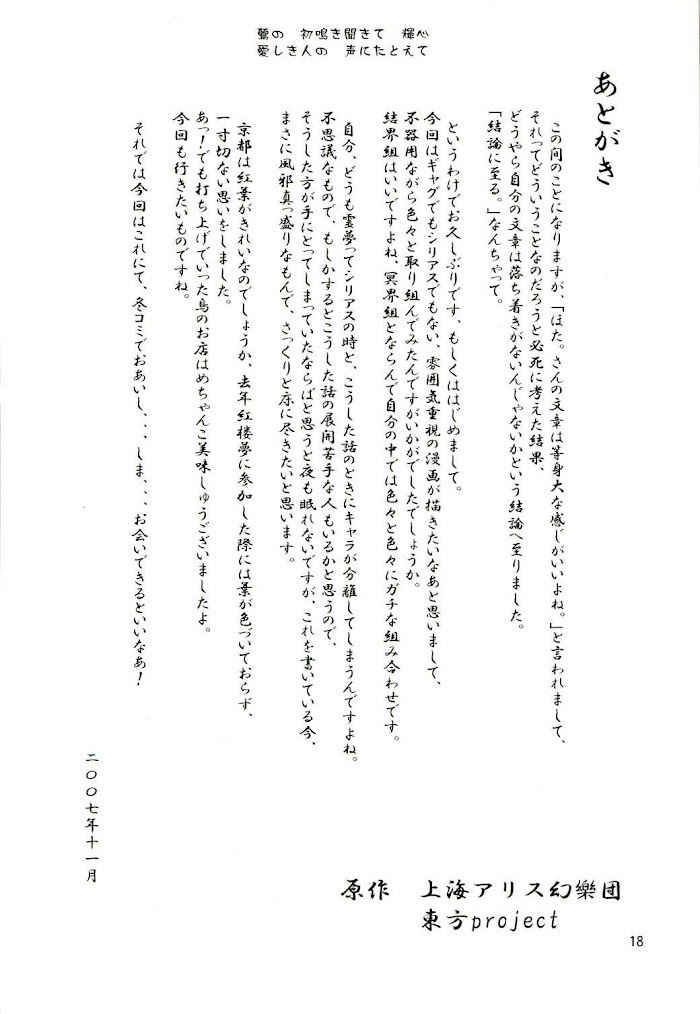 鶯の　初鳴き聞きて　輝く心
愛しき人の　声にたとえて
あとがき
この間のことになりますが、「ほた。さんの文章は等身大な感じがいいよね。」と言われまして、
それってどういうことなのだろうと必死に考えた結果、
どうやら自分の文章は落ち着きがないんじゃないかという結論へ至りました。
「結論に至る。」なんちゃって。
というわけでお久しぶりです、もしくははじめまして。
今回はギャグでもシリアスでもない、雰囲気重視の漫画が描きたいなあと思いまして、
不器用ながら色々と取り組んでみたんですがいかがでしたでしょうか。
結界組はいいですよね、冥界組とならんで自分の中では色々と色々にガチな組み合わせです。
自分、どうも霊夢ってシリアスの時と、こうした話のときにキャラが分離してしまうんですよね。
不思議なもので、もしかするとこうした話の展開苦手な人もいるかと思うので、
そうした方が手にとってしまっていたならばと思うと夜も眠れないですが、これを書いている今、
まさに風邪真っ盛りなもんで、さっくりと床に尽きたいと思います。
京都は紅葉がきれいなのでしょうか、去年紅楼夢に参加した際には葉が色づいておらず、
一寸切ない思いをしました。
あっ！でも打ち上げでいった鳥のお店はめちゃんこ美味しゅうございましたよ。
今回も行きたいものですね。
それでは今回はこれにて、冬コミでおあいし、、、しま、、、お会いできるといいなあ！
二〇〇七年十一月
原作　上海アリス幻樂団
東方project
18